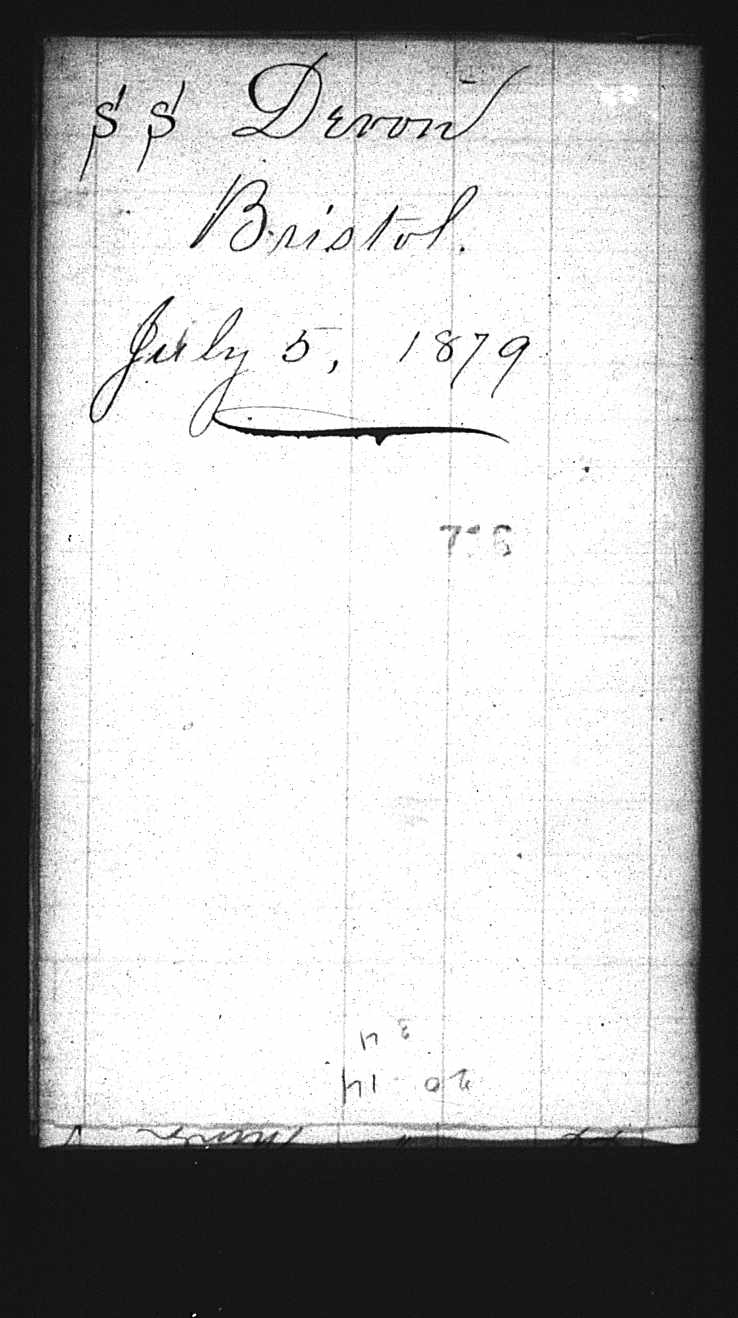 SS Devon
Bristol.
July 5, 1879